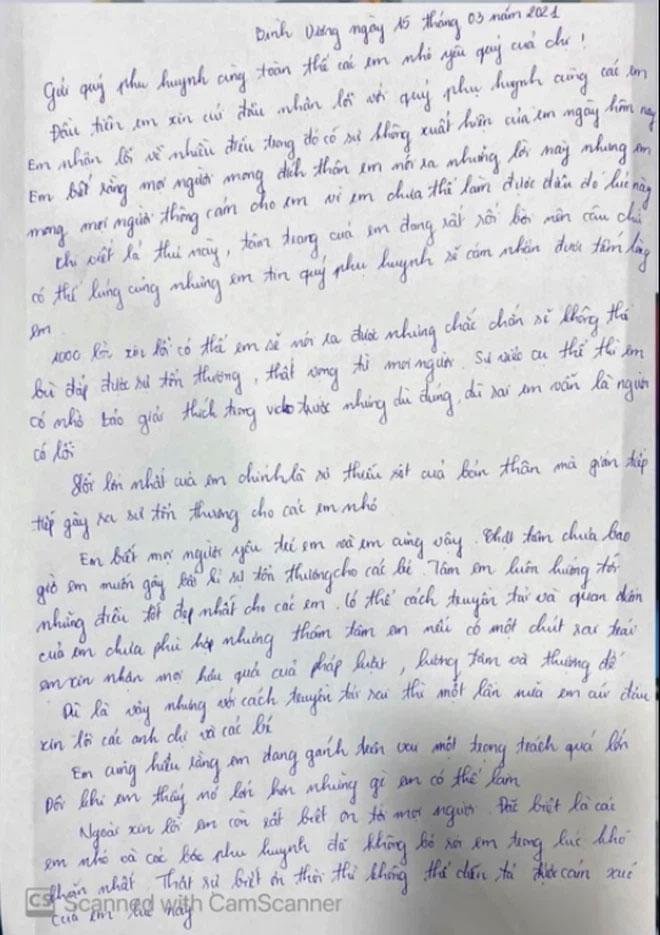 Bình Dương ngày 15 tháng 03 năm 2021
Gửi quý phụ huynh cùng toàn thể các em nhỏ yêu quý của chị!
Đầu tiên em xin cúi đầu nhận lỗi với quý phụ huynh cùng các em
Em nhận lỗi về nhiều điều trong đó có sự không xuất hiện của em ngày hôm nay
Em biết rằng mọi người mong đích thân em nói ra những lời này nhưng em
mong mọi người thông cảm cho em vì em chưa thể làm được điều đó lúc này
Khi viết lá thư này, tâm trạng của em đang rất rối bời nên câu chữ
có thể lủng củng nhưng em tin quý phụ huynh sẽ cảm nhận được tấm lòng
em.
1000 lần xin lỗi có thể em sẽ nói ra được nhưng chắc chắn sẽ không thể
bù đắp được sự tổn thương, thất vọng từ mọi người. Sự việc cụ thể thì em
có nhờ báo giải thích trong video trước nhưng dù đúng, dù sai em vẫn là người
có lỗi
Lỗi lớn nhất của em chính là sự thiếu sót của bản thân mà gián tiếp
tiếp gây ra sự tổn thương cho các em nhỏ
Em biết mọi người yêu trẻ em và em cũng vậy. Thật tâm chưa bao
giờ em muốn gây bất kì sự tổn thương cho các bé. Tâm em luôn hướng tới
những điều tốt đẹp nhất cho các em. Có thể cách truyền tải và quan điểm
của em chưa phù hợp nhưng thâm tâm em nếu có một chút sai trái
em xin nhận mọi hậu quả của pháp luật, lương tâm và thượng đế
Dù là vậy nhưng với cách truyền tải sai thì một lần nữa em cúi đầu
xin lỗi các anh chị và các bé
Em cũng hiểu rằng em đang gánh trên vai một trọng trách quá lớn
Đôi khi em thấy nó lớn hơn những gì em có thể làm
Ngoài xin lỗi em còn rất biết ơn tới mọi người. Đặc biệt là các
em nhỏ và các bậc phụ huynh đã không bỏ rơi em trong lúc khó
khăn nhất. Thật sự biết ơn thôi thì không thể diễn tả được cảm xúc
của em lúc này
CS Scanned with CamScanner